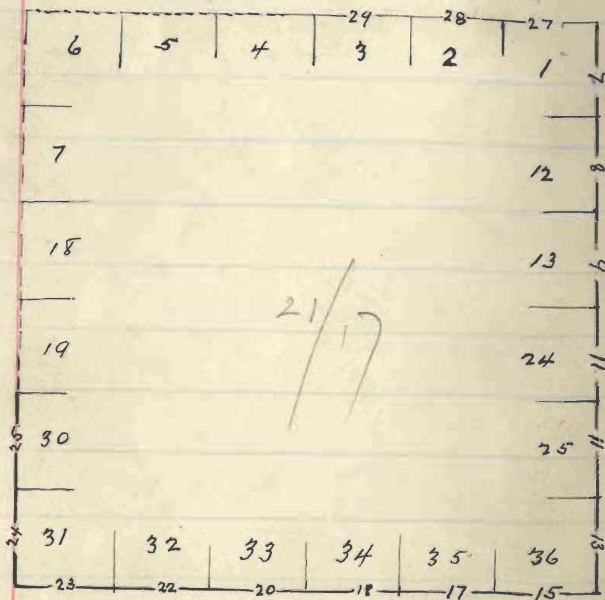 29 28 27
6 5 4 3 2 1
7
7 12
8
18 13
9
21/17
19 24
11
30 25
25 11
31 32 33 34 35 36
24 13
23 22 20 18 17 15